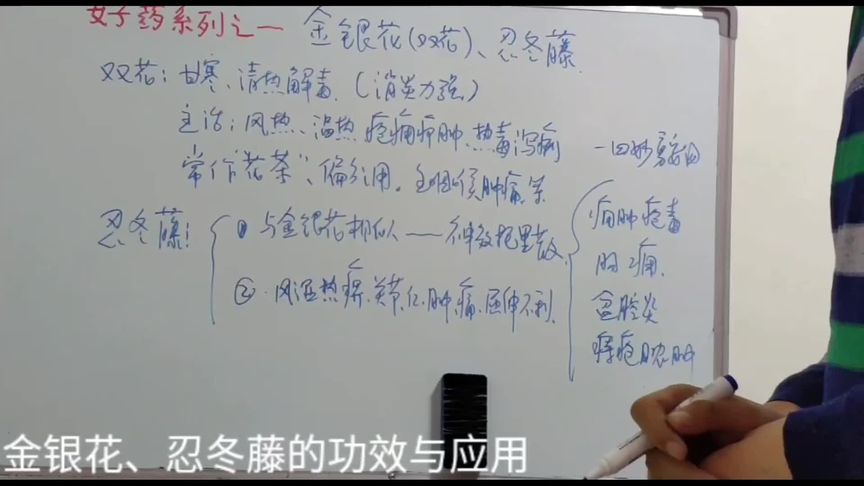 女子药系列之一 金银花(双花)、忍冬藤
双花:甘寒、清热解毒.(消炎力强)
主治:风热、温热,疮痈疖肿,热毒泻痢
常作“花茶”、偏方用。主咽喉肿痛等 一四妙勇安
忍冬藤: ① 与金银花相似——神效托里散
② 风湿热痹、关节红、肿、痛、屈伸不利
痈肿疮毒
肠痈
盆腔炎
痔疮脓肿
金银花、忍冬藤的功效与应用